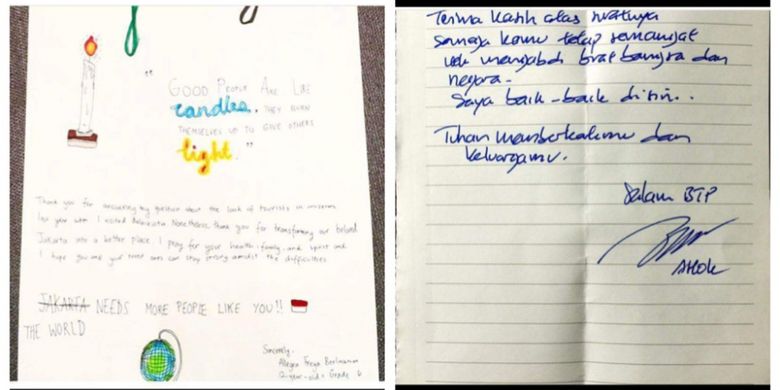 "GOOD PEOPLE ARE LIKE
candles, THEY BURN
THEMSELVES UP TO GIVE OTHERS
light."
Thank you for answering my question about the lack of tourists in museums
last year when I visited Balaikota. Nonetheless, thank you for transforming our beloved
Jakarta into a better place. I pray for your health, family, and spirit and
I hope you and your loved ones can stay strong amidst the difficulties
JAKARTA NEEDS MORE PEOPLE LIKE YOU!!
THE WORLD
Sincerely,
Allegra Freya
12-year-old - Grade 6
Terima kasih atas suratnya
semoga kamu tetap semangat
utk mengabdi bagi bangsa dan
negara.
Saya baik-baik disini.
Tuhan memberkatimu dan
keluargamu.
Salam BTP
AHOK